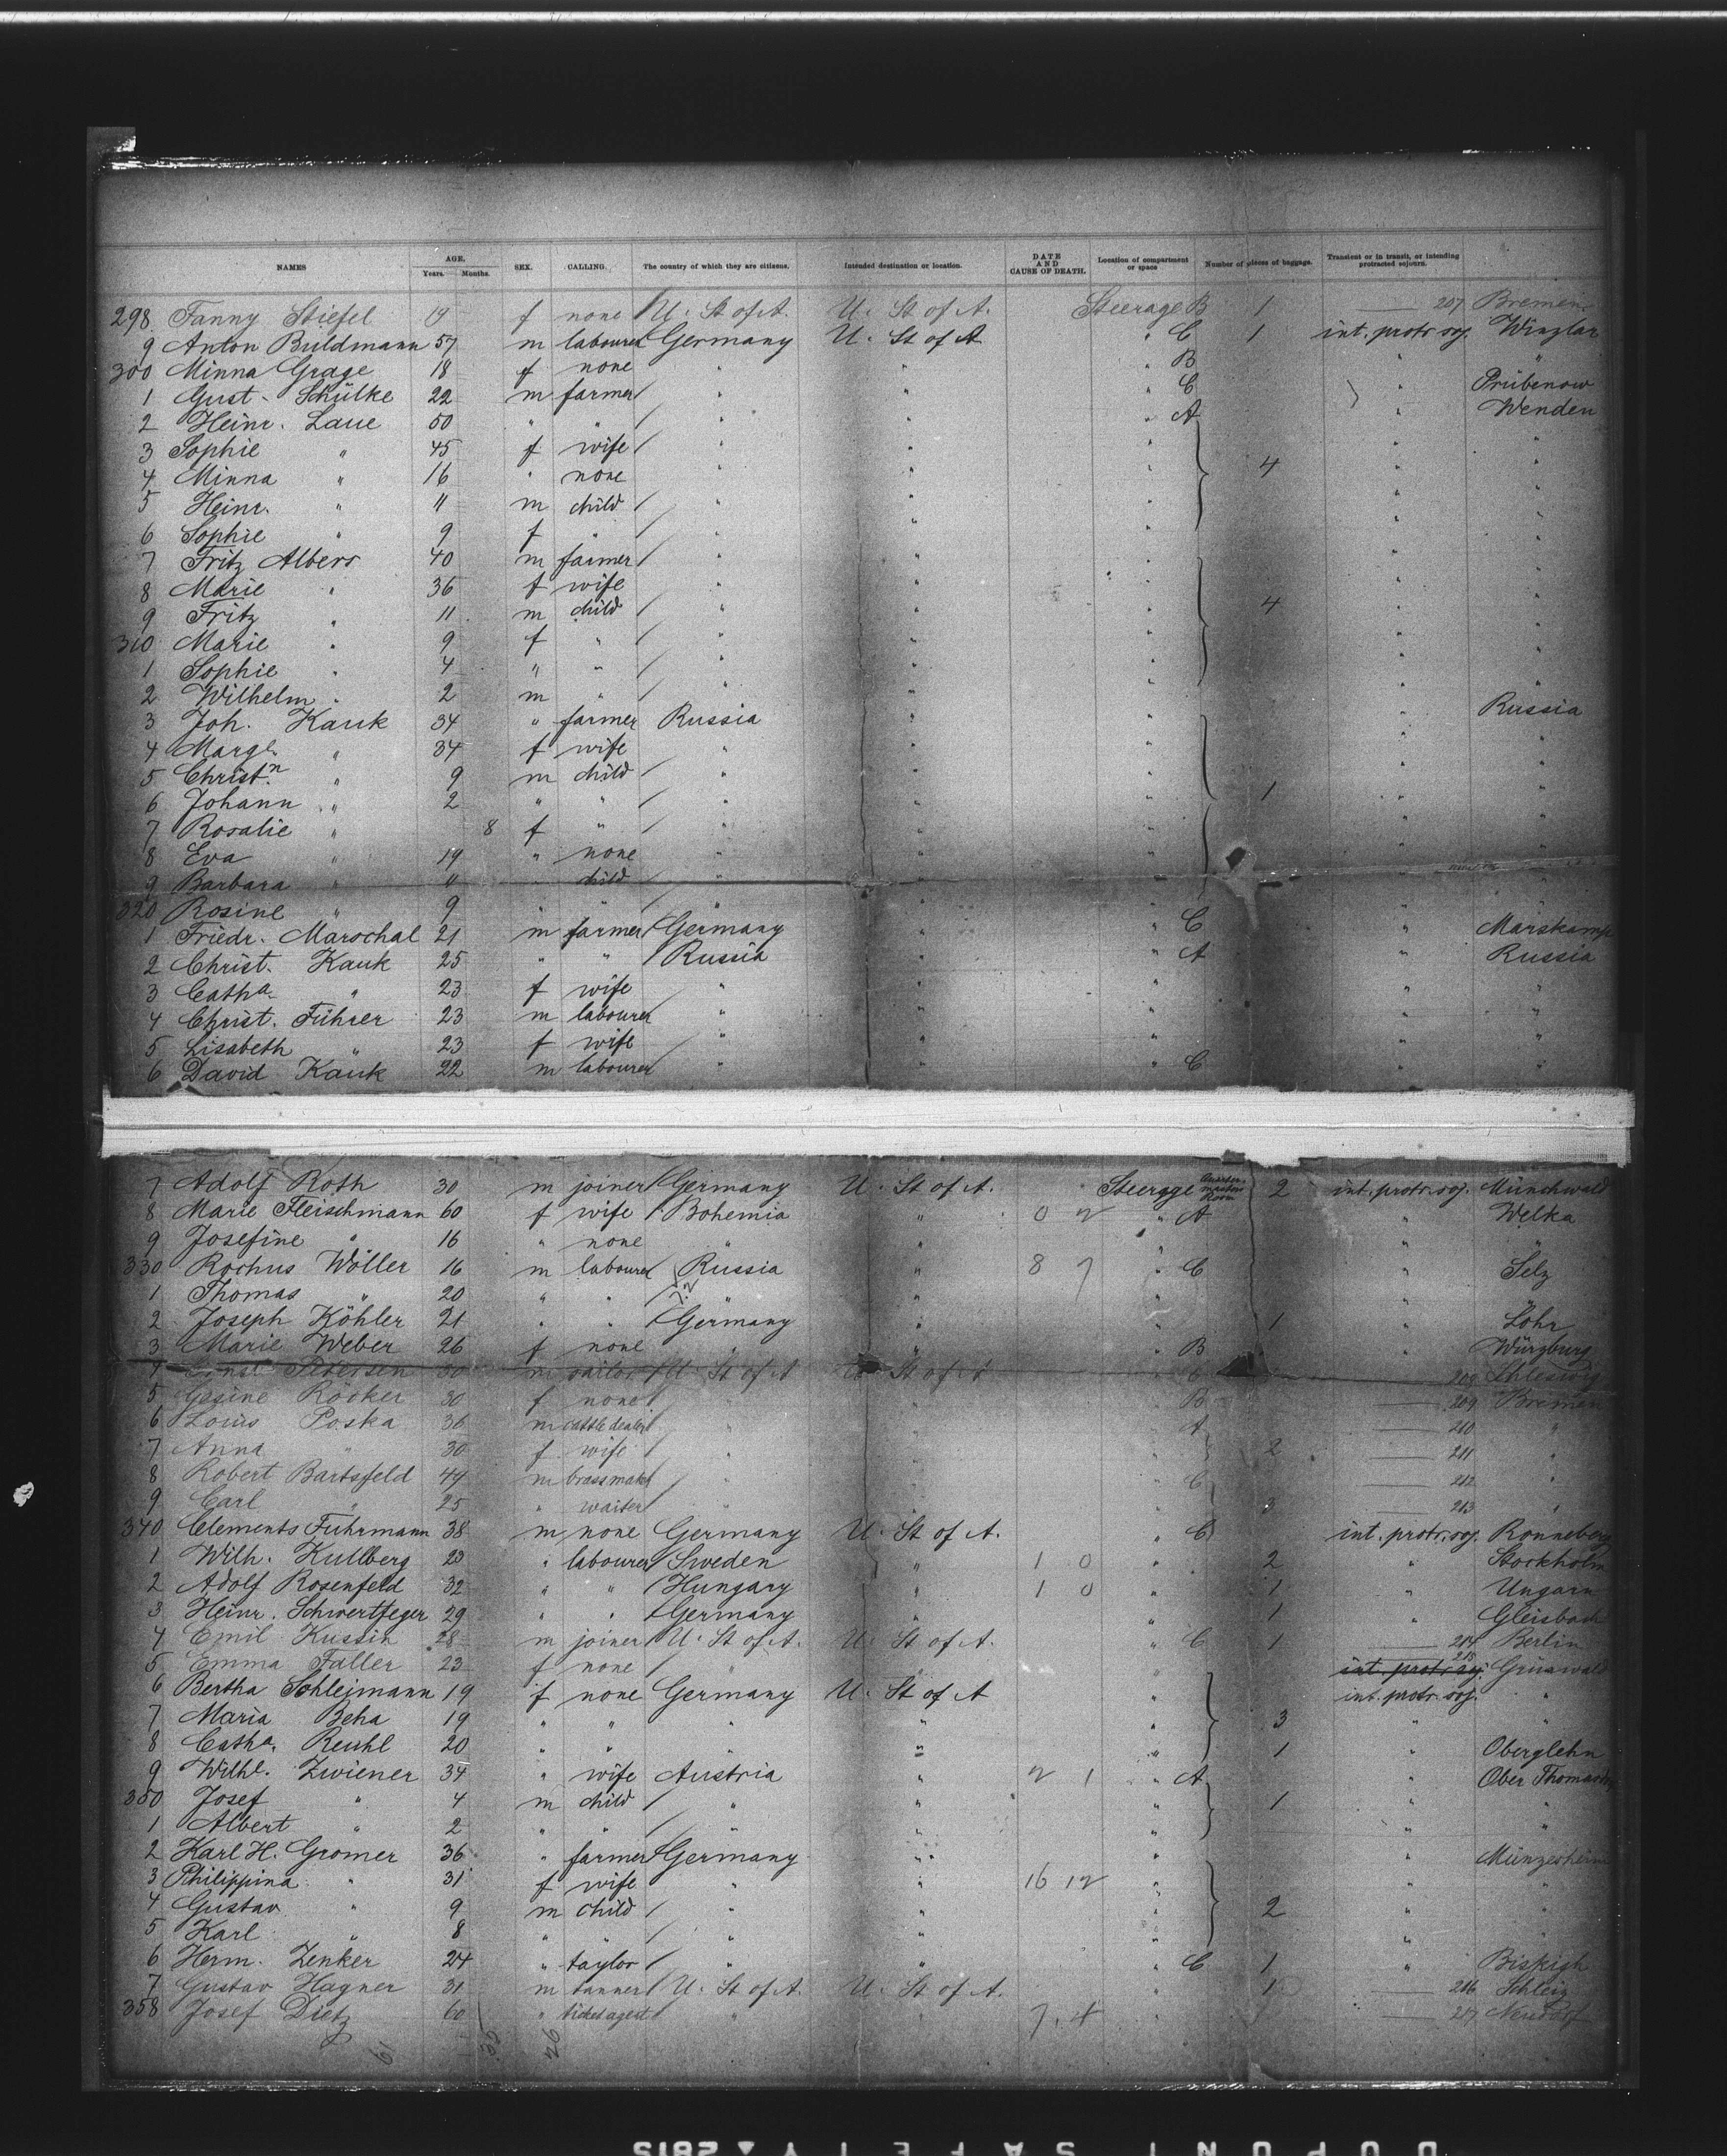 NAMES AGE. Years. Months. SEX. CALLING. The country of which they are citizens. Intended destination or location. DATE AND CAUSE OF DEATH. Location of compartment or space Number of pieces of baggage. Transient or in transit, or intending protracted sojourn.
298 Fanny Stiefel 19 f none U. St of A. U. St of A. Steerage B 1 — 207 Bremen
9 Anton Buldmann 57 m labourer Germany U. St of A " C 1 int. protr. soj. Winzlar
300 Minna Grage 18 f none " " " B " "
1 Gust. Schülke 22 m farmer " " " C " Prübenow
2 Heinr. Laue 50 " " " " " A " Wenden
3 Sophie " 45 f wife " " " " "
4 Minna " 16 " none " " 4 " "
5 Heinr. " 11 m child " " " " "
6 Sophie " 9 f " " " " " "
7 Fritz Albers 40 m farmer " " " " "
8 Marie " 36 f wife " " " " "
9 Fritz " 11 m child " " " 4 " "
310 Marie " 9 f " " " " " "
1 Sophie " 4 " " " " " " "
2 Wilhelm " 2 m " " " " " "
3 Joh. Kauk 34 " farmer Russia " " " Russia
4 Margt. " 34 f wife " " " " "
5 Christn " 9 m child " " " " "
6 Johann " 2 " " " " " 1 " "
7 Rosalie " 8 f " " " " " "
8 Eva " 19 " none " " " " "
9 Barbara " 11 " child " " " " "
320 Rosine " 9 " " " " " " "
1 Friedr. Marschal 21 m farmer Germany " " C " Marskamp
2 Christ. Kauk 25 " " Russia " " A " Russia
3 Catha " 23 f wife " " " " "
4 Christ. Führer 23 m labourer " " " " "
5 Lisabeth " 23 f wife " " " " "
6 David Kauk 22 m labourer " " " C " "
7 Adolf Roth 30 m joiner Germany U. St of A. Steerage Quarter-masters Room 2 int. protr. soj. Münchwald
8 Marie Fleischmann 60 f wife Bohemia " 0 2 " A " Welka
9 Josefine " 16 " none " " " " "
330 Rochus Wöller 16 m labourer Russia " 8 7 " C " Selz
1 Thomas " 20 " " " " " " "
2 Joseph Köhler 21 " " Germany " " 1 " Lohr
3 Marie Weber 26 f none " " " B " Würzburg
4 Ernst Petersen 30 m sailor U. St of A U. St of A " C — 208 Schleswig
5 Gesine Röcker 30 f none " " " B — 209 Bremen
6 Louis Poska 36 m cattle dealer " " " A — 210 "
7 Anna " 30 f wife " " " 2 — 211 "
8 Robert Bartsfeld 44 m brassmaker " " " C — 212 "
9 Carl " 25 " waiter " " " 3 — 213 "
340 Clements Fuhrmann 38 m none Germany U. St of A. " C int. protr. soj. Ronneberg
1 Wilh. Kullberg 23 " labourer Sweden " 1 0 " 2 " Stockholm
2 Adolf Rosenfeld 32 " " Hungary " 1 0 " 1 " Ungarn
3 Heinr. Schwertfeger 29 " " Germany " " 1 " Gleisbach
4 Emil Kussin 28 m joiner U. St of A. U. St of A. " C 1 — 214 Berlin
5 Emma Faller 23 f none " " " 215 int. protr. soj. Grünwald
6 Bertha Schleimann 19 f none Germany U. St of A " int. protr. soj. "
7 Maria Beha 19 " " " " " 3 " "
8 Catha. Reuhl 20 " " " " " 1 " Oberglehn
9 Wilhe. Zwiener 34 " wife Austria " 2 1 " A "
350 Josef " 4 m child " " " 1 " "
1 Albert " 2 " " " " " " "
2 Karl H. Gromer 36 " farmer Germany " " " Münzesheim
3 Philippina " 31 f wife " " 16 12 " " "
4 Gustav " 9 m child " " " 2 " "
5 Karl " 8 " " " " " " "
6 Herm. Zenker 24 " taylor " " " C 1 "
7 Gustav Hagner 31 m tanner U. St of A. U. St of A. " 1 — 216 Schleiz
358 Josef Dietz 60 " ticket agent " " 7. 4 — 217 Neudorf